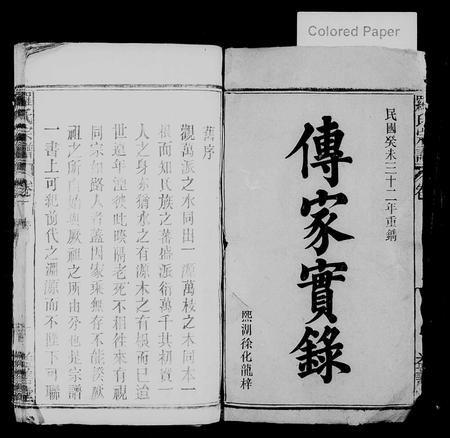 Colored Paper
民國癸未三十二年重鐫
傳家實錄
熙湖徐化龍梓
羅氏宗譜
舊序
觀萬派之水同出一源萬枝之木同本一
根而知民族之蕃盛派衍萬千其初實一
人之身亦猶水之有源木之有根而已迨
世遠年湮彼此暌隔老死不相往來有視
同宗如路人者蓋因家乘無存不能溪厥
祖之所自始與厥祖之所由分也是宗譜
一書上可紀前代之淵源而不墜下可聯
羅氏宗譜